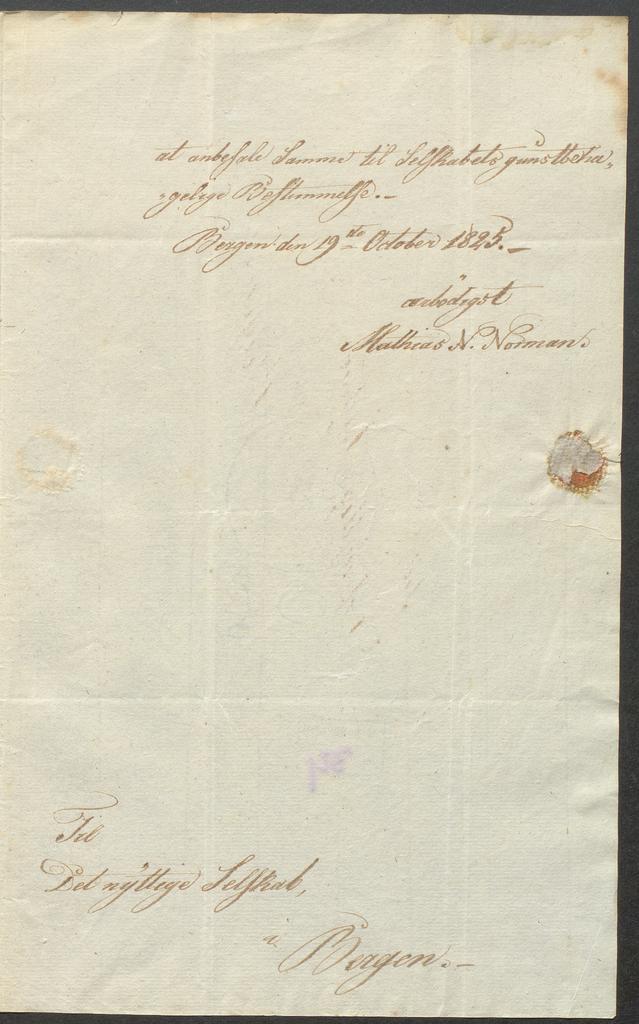 at anbefale Samme til Selskabets gunstbeha„
„gelige Bestemmelse.–
Bergen den 19de October 1825.–
ærbödigst
Mathias N. Norman.
Til
Det nÿttige Selskab,
i Bergen.–